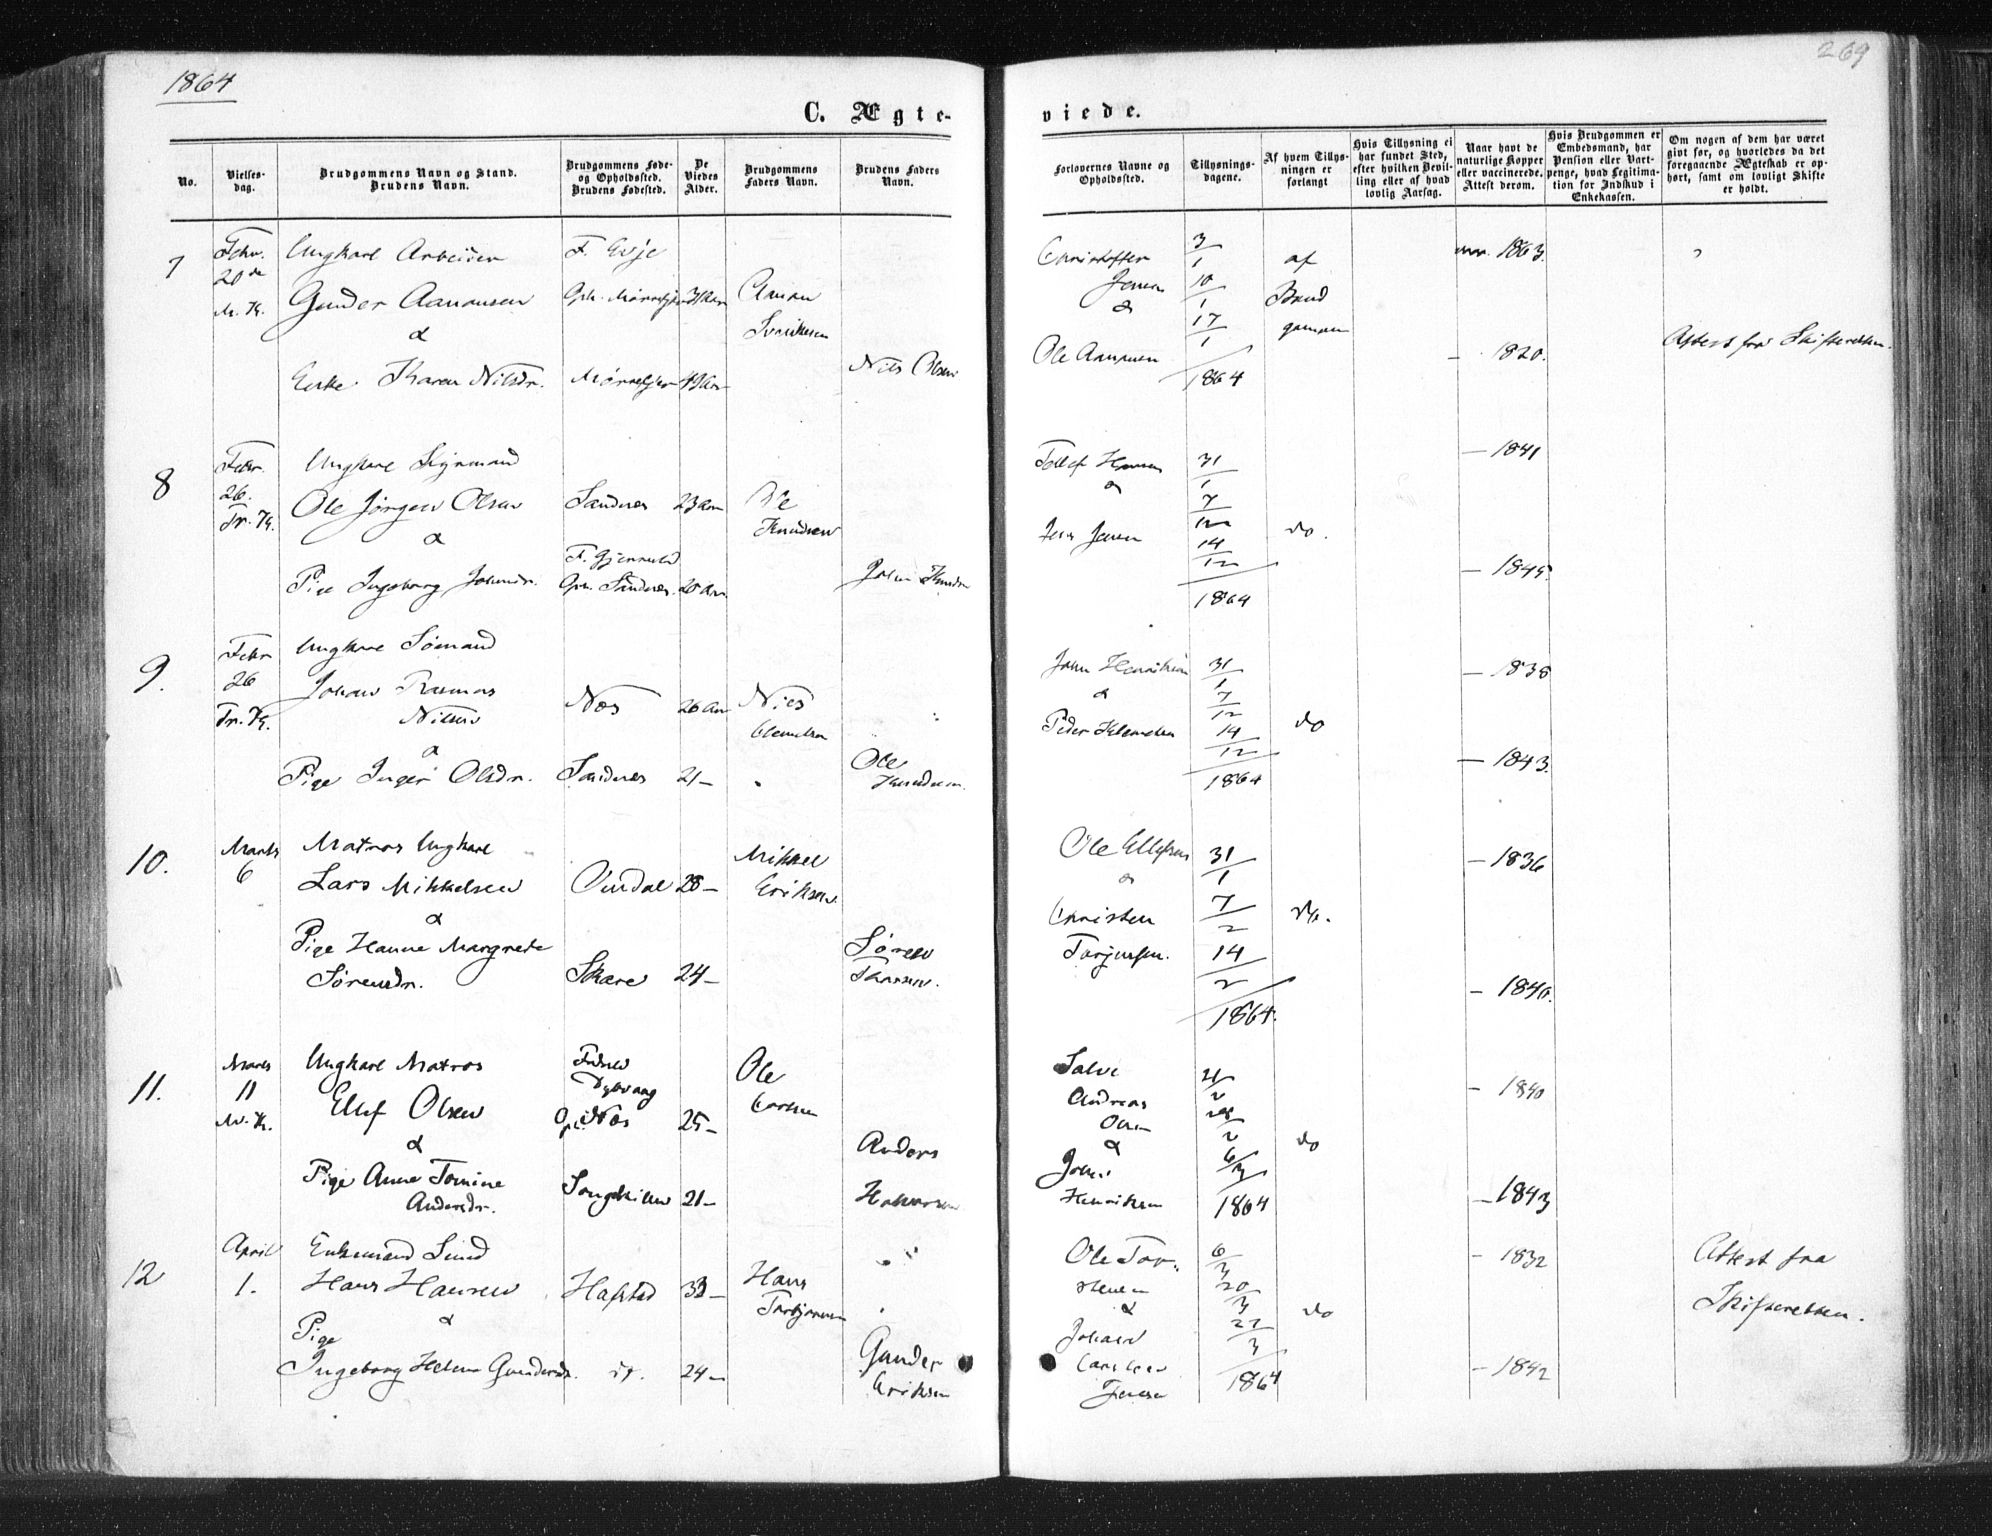 1864
269
C. Ægte-
viede.
No.
Vielses-
dag.
Brudgommens Navn og Stand.
Brudens Navn.
Brudgommens Føde-
og Opholdssted.
Brudens Fødested.
De
Viedes
Alder.
Brudgommens
Faders Navn.
Brudens Faders
Navn.
Forlovernes Navne og
Opholdssted.
Tillysnings-
dagene.
Af hvem Tillys-
ningen er
forlangt
Hvis Tillysning ei
har fundet Sted,
efter hvilken Bevil-
ling eller af hvad
lovlig Aarsag.
Naar havt de
naturlige Kopper
eller vaccinerede.
Attest derom.
Hvis Brudgommen er
Embedsmand, har
Pension eller Vart-
penge, hvad Legitima-
tion for Indskud i
Enkekassen.
Om nogen af dem har været
givt før, og hvorledes da det
foregaaende Ægteskab er op-
hørt, samt om lovligt Skifte
er holdt.
7
Febr.
20de
Ungkarl Arbeider
Gunder Aanonsen
&
Enke Karen Nilsdr.
F. Evje
Nils Olsen
Christoffer
Jensen
&
Ole
3/1
10/1
17/1
1864
af
Brud
gommen
1863.
– 1820.
Attest fra Skifteretten.
8
Febr.
26.
Fr. K.
Ungkarl
Ole Jørgen Olsen
&
Pige Ingeborg
Sandnes
23 Aar
Ole
Knudsen
Oph. Sandnes.
Jens Jensen
31/1
7/12
14/12
1864
do.
– 1841
– 1845.
9.
Febr
26
Fr. K.
Ungkarl Sømand
Johan Rasmus
Nilsen
&
Pige Inger Olsdr.
Næs
26 Aar
Niels
Sandnes
21 –
Ole
Knudsen.
John Henriksen
&
Peder Klemetsen
31/1
7/12
14/12
1864
do
– 1838
– 1843.
10.
Marts
6
Matros Ungkarl
Lars Mikkelsen
&
Pige Hanne Margrete
Sørensdr.
28 –
Mikkel
Eriksen.
Skare
24 –
Søren
Ole Ellefsen
&
Christen
Torjussen.
31/1
7/2
14/2
1864.
do.
– 1836
– 1840.
11.
Marts
11
Ungkarl Matros
Ellef Olsen
&
Pige Anne Tomine
Andersdr.
Dybvaag
Næs
25 –
Ole
21 –
Anders
Salve
Andreas
Olsen
&
Henriksen
21/2
28/2
6/3
1864
do
– 1840
– 1843
12
April
1.
Enkemand
Hans Hansen
&
Pige
Ingeborg Helene Gundersdr.
Hafstad
33 –
Hans
Torbjørnsen
24 –
Gunder
Eriksen
Ole Tor-
stensen
&
Johan
6/3
20/3
1864
do
– 1832
– 1842
Attest fra
Skifteretten.